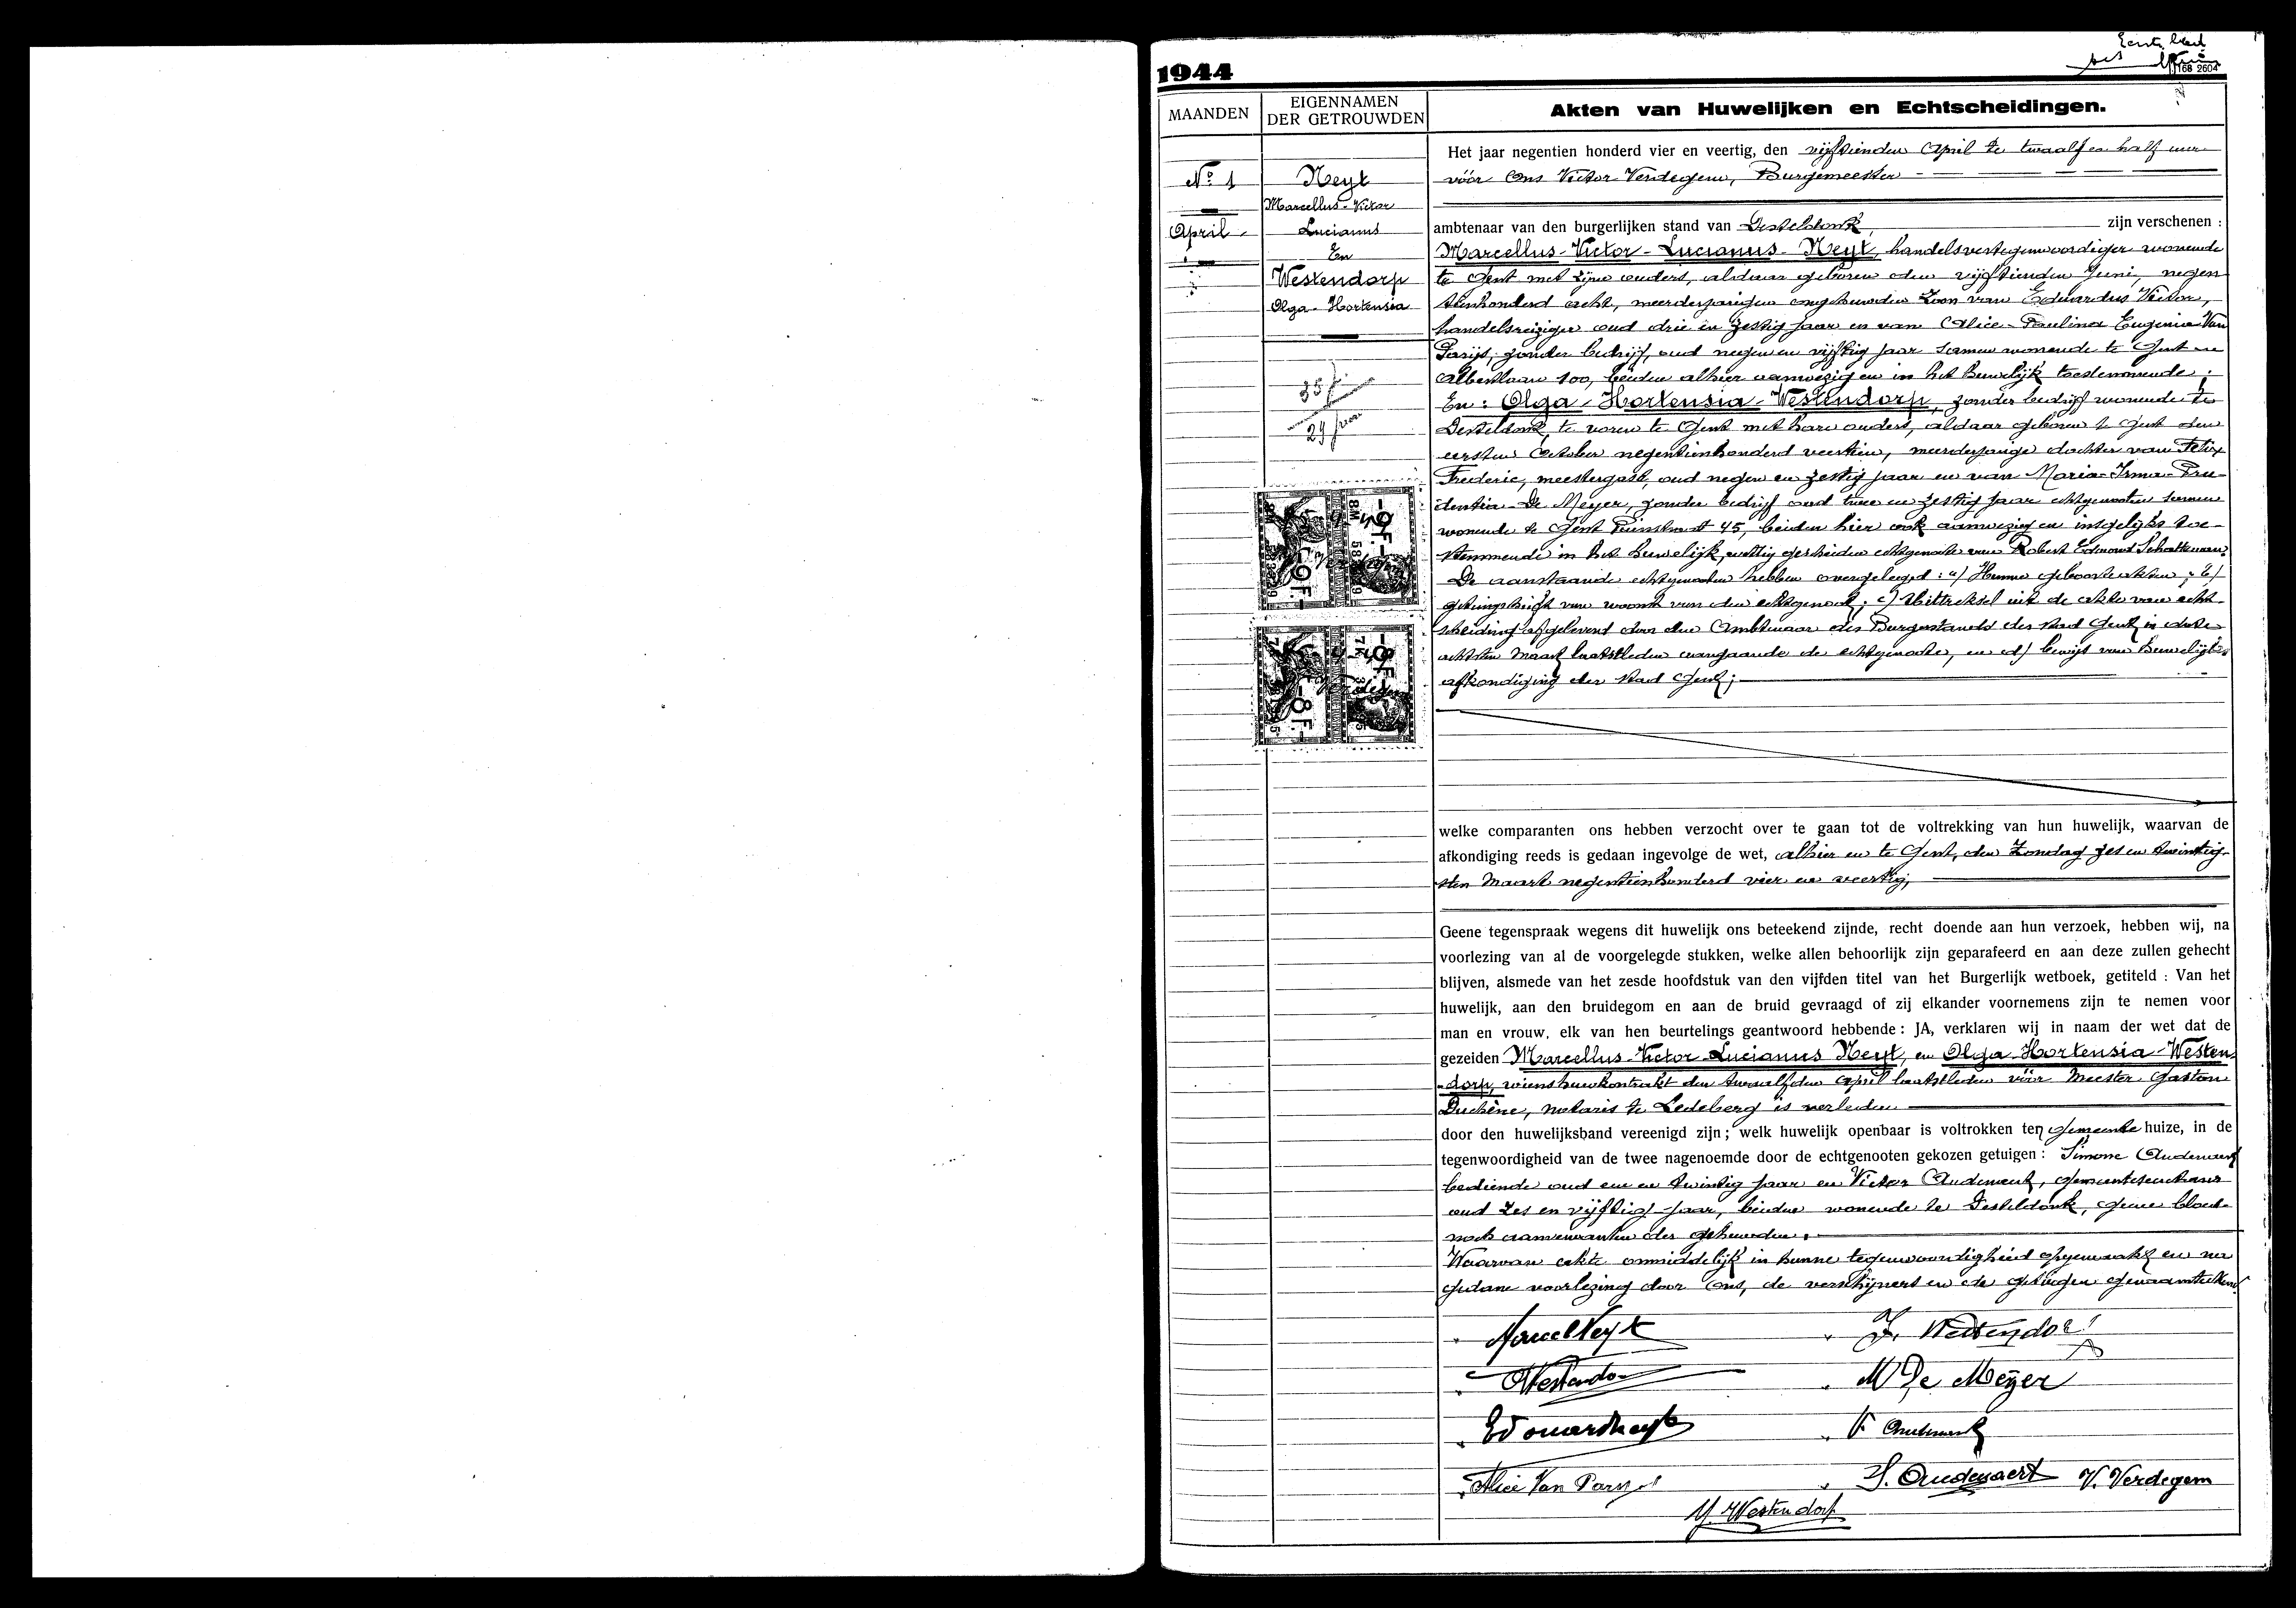 Eerste blad
168 2604
1944
MAANDEN
EIGENNAMEN
DER GETROUWDEN
Akten van Huwelijken en Echtscheidingen.
Nº 1
April
Neyt
Marcellus-Victor
Lucianus
En
Westendorp
Olga-Hortensia
35 j
29 j
Het jaar negentien honderd vier en veertig, den vijftienden April te twaalf en half uur
vóór Ons Victor Verdegem, Burgemeester
ambtenaar van den burgerlijken stand van Desteldonk, zijn verschenen :
Marcellus-Victor-Lucianus-Neyt, handelsvertegenwoordiger wonende
te Gent met zijne ouders, aldaar geboren den vijftienden Juni, negen-
tienhonderd acht, meerderjarigen ongehuwden zoon van Eduardus Victor,
handelsreiziger oud drie en zestig jaar en van Alice-Paulina Eugenia Van
Parijs, zonder bedrijf, oud negen en vijftig jaar samen wonende te Gent
Albertlaan 100, beiden alhier aanwezig en in het huwelijk toestemmende ;
En : Olga-Hortensia-Westendorp, zonder bedrijf wonende te
Desteldonk, te voren te Gent met hare ouders, aldaar geboren te Gent den
eersten October negentienhonderd veertien, meerderjarige dochter van Felix
Frederic, meestergast, oud negen en zestig jaar en van Maria-Irma-Pru-
dentia De Meyer, zonder bedrijf oud twee en zestig jaar echtgenooten samen
wonende te Gent 45, beiden hier ook aanwezig en insgelijks toe-
stemmende in het huwelijk, wettig gescheiden echtgenoote van Robert Edmond Schatteman.
De aanstaande echtgenooten hebben overgelegd : a) Hunne geboorteakten ; b)
getuigschrift van woonst van den echtgenoot ; c) Uittreksel uit de akte van echt-
scheiding afgeleverd door den Ambtenaar des Burgerstands der stad Gent in date
achtsten Maart laatstleden aangaande de echtgenoote, en d) bewijs van huwelijks
afkondiging der stad Gent ;
-9F.-
-9F.-
-8F.-
-8F.-
welke comparanten ons hebben verzocht over te gaan tot de voltrekking van hun huwelijk, waarvan de
afkondiging reeds is gedaan ingevolge de wet, alhier en te Gent, den Zondag zes en twintig-
sten Maart negentienhonderd vier en veertig,
Geene tegenspraak wegens dit huwelijk ons beteekend zijnde, recht doende aan hun verzoek, hebben wij, na
voorlezing van al de voorgelegde stukken, welke allen behoorlijk zijn geparafeerd en aan deze zullen gehecht
blijven, alsmede van het zesde hoofdstuk van den vijfden titel van het Burgerlijk wetboek, getiteld : Van het
huwelijk, aan den bruidegom en aan de bruid gevraagd of zij elkander voornemens zijn te nemen voor
man en vrouw, elk van hen beurtelings geantwoord hebbende : JA, verklaren wij in naam der wet dat de
gezeiden Marcellus-Victor-Lucianus Neyt, en Olga-Hortensia-Westen-
dorp, wiens huwkontrakt den twaalfden April laatstleden vóór Meester Gaston
Duchène, notaris te Ledeberg is verleden
door den huwelijksband vereenigd zijn ; welk huwelijk openbaar is voltrokken ten gemeente huize, in de
tegenwoordigheid van de twee nagenoemde door de echtgenooten gekozen getuigen : Simone Audenaert
bediende oud een en twintig jaar en Victor Audenaert, gemeentesecretaris
oud zes en vijftig jaar, beiden wonende te Desteldonk, geene bloed-
noch aanverwanten der gehuwden.
Waarvan akte onmiddelijk in hunne tegenwoordigheid opgemaakt en na
gedane voorlezing door Ons, de verschijners en de getuigen genaamteekend
Marcel Neyt
F. Westendorp
O Westendorp
M De Meyer
Edouard Neyt
V Audenaert
Alice Van Parys
S. Audenaert
V. Verdegem
M. Westendorp